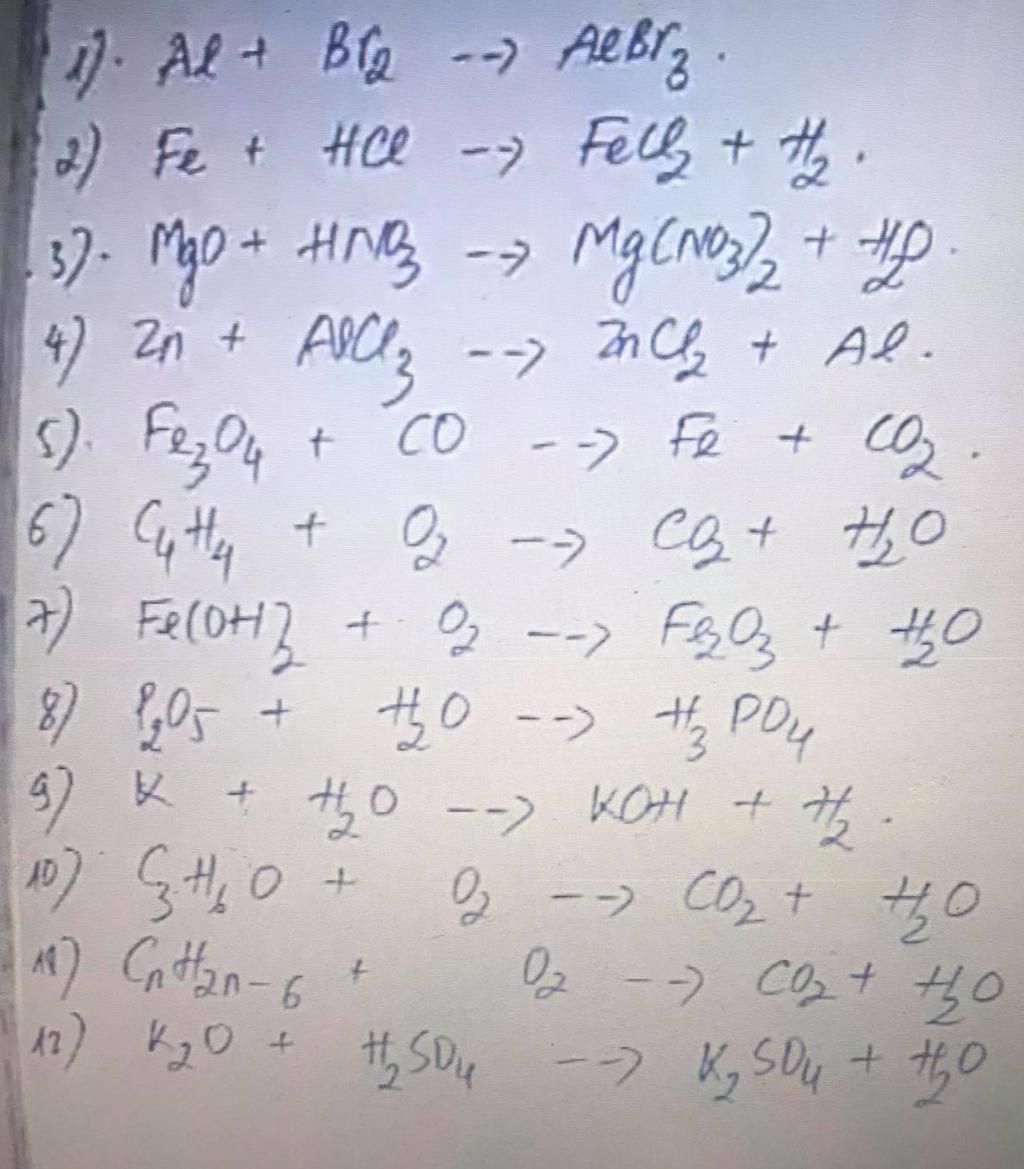 1). Al + Br₂ --> AlBr₃.
2) Fe + HCl --> FeCl₂ + H₂.
3). MgO + HNO₃ --> Mg(NO₃)₂ + H₂O.
4) Zn + AlCl₃ --> ZnCl₂ + Al.
5). Fe₃O₄ + CO --> Fe + CO₂.
6) C₄H₄ + O₂ --> CO₂ + H₂O
7) Fe(OH)₂ + O₂ --> Fe₂O₃ + H₂O
8) P₂O₅ + H₂O --> H₃PO₄
9) K + H₂O --> KOH + H₂.
10) C₃H₆O + O₂ --> CO₂ + H₂O
11) CₙH₂ₙ₋₆ + O₂ --> CO₂ + H₂O
12) K₂O + H₂SO₄ --> K₂SO₄ + H₂O